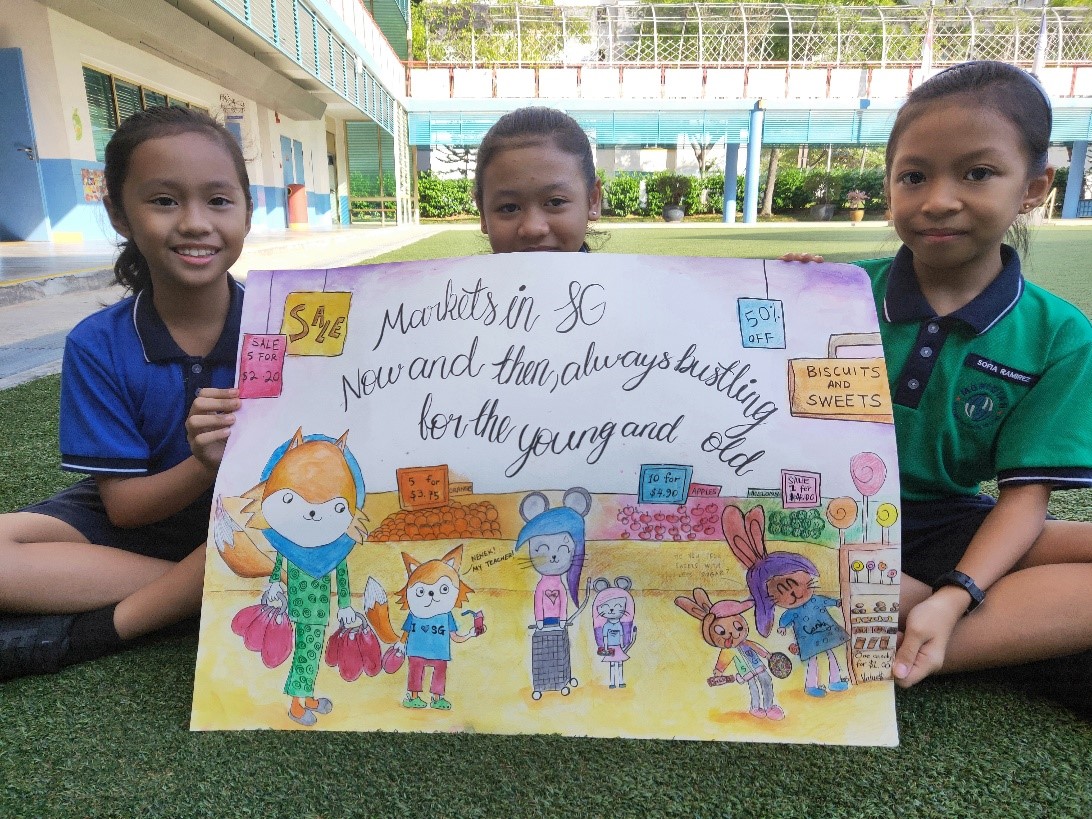 SALE
SALE
5 FOR
$2.20
Markets in SG
Now and then, always bustling
for the young and old
50%
OFF
BISCUITS
AND
SWEETS
SOFIA RAMIREZ
5 for
$3.75
ORANGE
10 for
$4.90
APPLES
SALE
1 for
NENEK!
MY TEACHER!
I SG
Candy
One candy
for